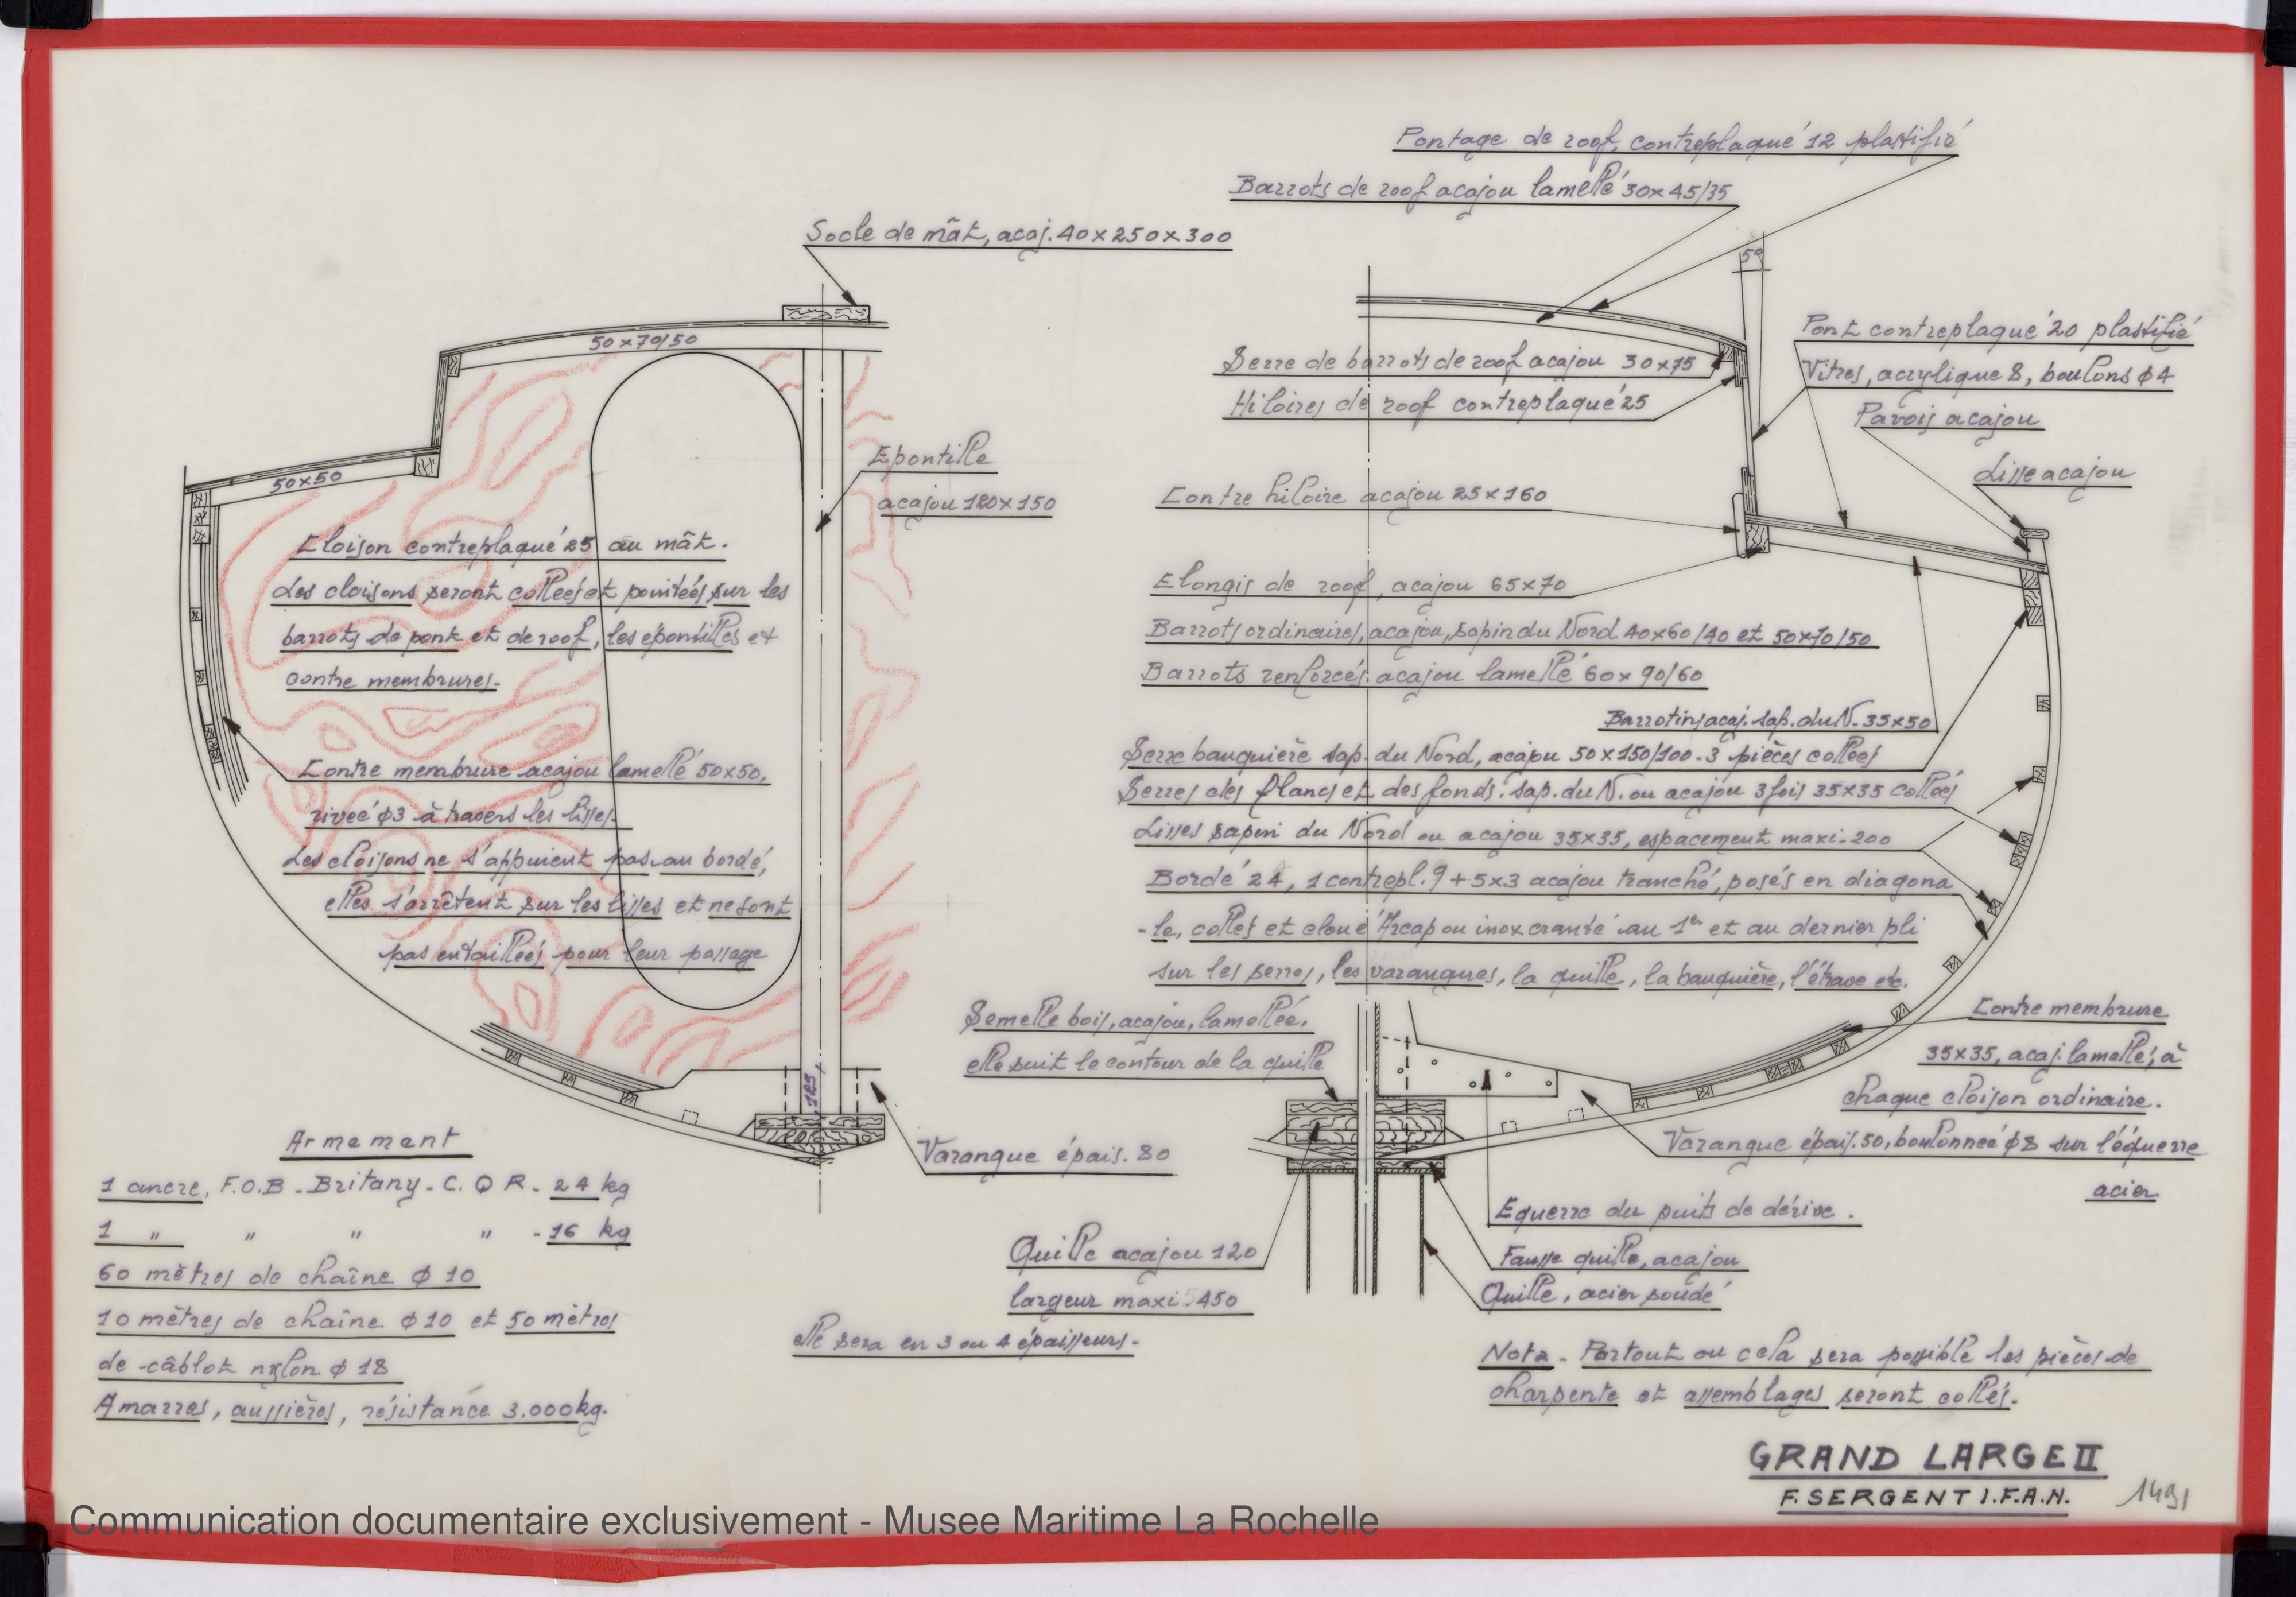 Pontage de roof, contreplaqué 12 plastifié
Barrots de roof acajou lamellé 30x45/35
Socle de mât, acaj. 40x250x300
5°
50x70/50
50x50
Serre de barrots de roof acajou 30x75
Hiloires de roof contreplaqué 25
Pont contreplaqué 20 plastifié
Vitres, acrylique 8, boulons ϕ4
Pavois acajou
Lisse acajou
Epontille
acajou 120x150
Contre hiloire acajou 25x160
Elongis de roof, acajou 65x70
Barrots ordinaires, acajou, sapin du Nord 40x60/40 et 50x70/50
Barrots renforcés acajou lamellé 60x90/60
Barrotins acaj. sap. du N. 35x50
Serre bauquière sap. du Nord, acajou 50x150/100 - 3 pièces collées
Serres des flancs et des fonds. sap. du N. ou acajou 3 fois 35x35 collés
Lisses sapin du Nord ou acajou 35x35, espacement maxi. 200
Bordé 24, 1 contrepl. 9 + 5x3 acajou tranché, posés en diagona
-le, collés et cloué Arcap ou inox cranté au 1er et au dernier pli
sur les serres, les varangues, la quille, la bauquière, l'étrave etc.
Cloison contreplaqué 25 au mât.
Les cloisons seront collées et pointées sur les
barrots de pont et de roof, les épontilles et
contre membrures.
Contre membrure acajou lamellé 50x50,
rivée ϕ3 à travers les lisses
Les cloisons ne s'appuient pas au bordé,
elles s'arrêtent sur les lisses et ne sont
pas entaillées pour leur passage
125
Semelle bois, acajou, lamellée,
elle suit le contour de la quille
Contre membrure
35x35, acaj. lamellé, à
chaque cloison ordinaire.
Varangue épais. 50, boulonnée ϕ8 sur l'équerre
acier
Varangue épais. 80
Equerre du puits de dérive.
Fausse quille, acajou
Quille, acier soudé
Quille acajou 120
largeur maxi. 450
elle sera en 3 ou 4 épaisseurs.
Armement
1 ancre, F.O.B - Britany - C.Q.R. - 24 kg
1 " " " " - 16 kg
60 mètres de chaîne ϕ 10
10 mètres de chaîne ϕ 10 et 50 mètres
de câblot nylon ϕ 18
Amarres, aussières, résistance 3.000kg.
Nota - Partout ou cela sera possible les pièces de
charpente et assemblages seront collés.
GRAND LARGE II
F. SERGENT I.F.A.N.
1491
Communication documentaire exclusivement - Musee Maritime La Rochelle